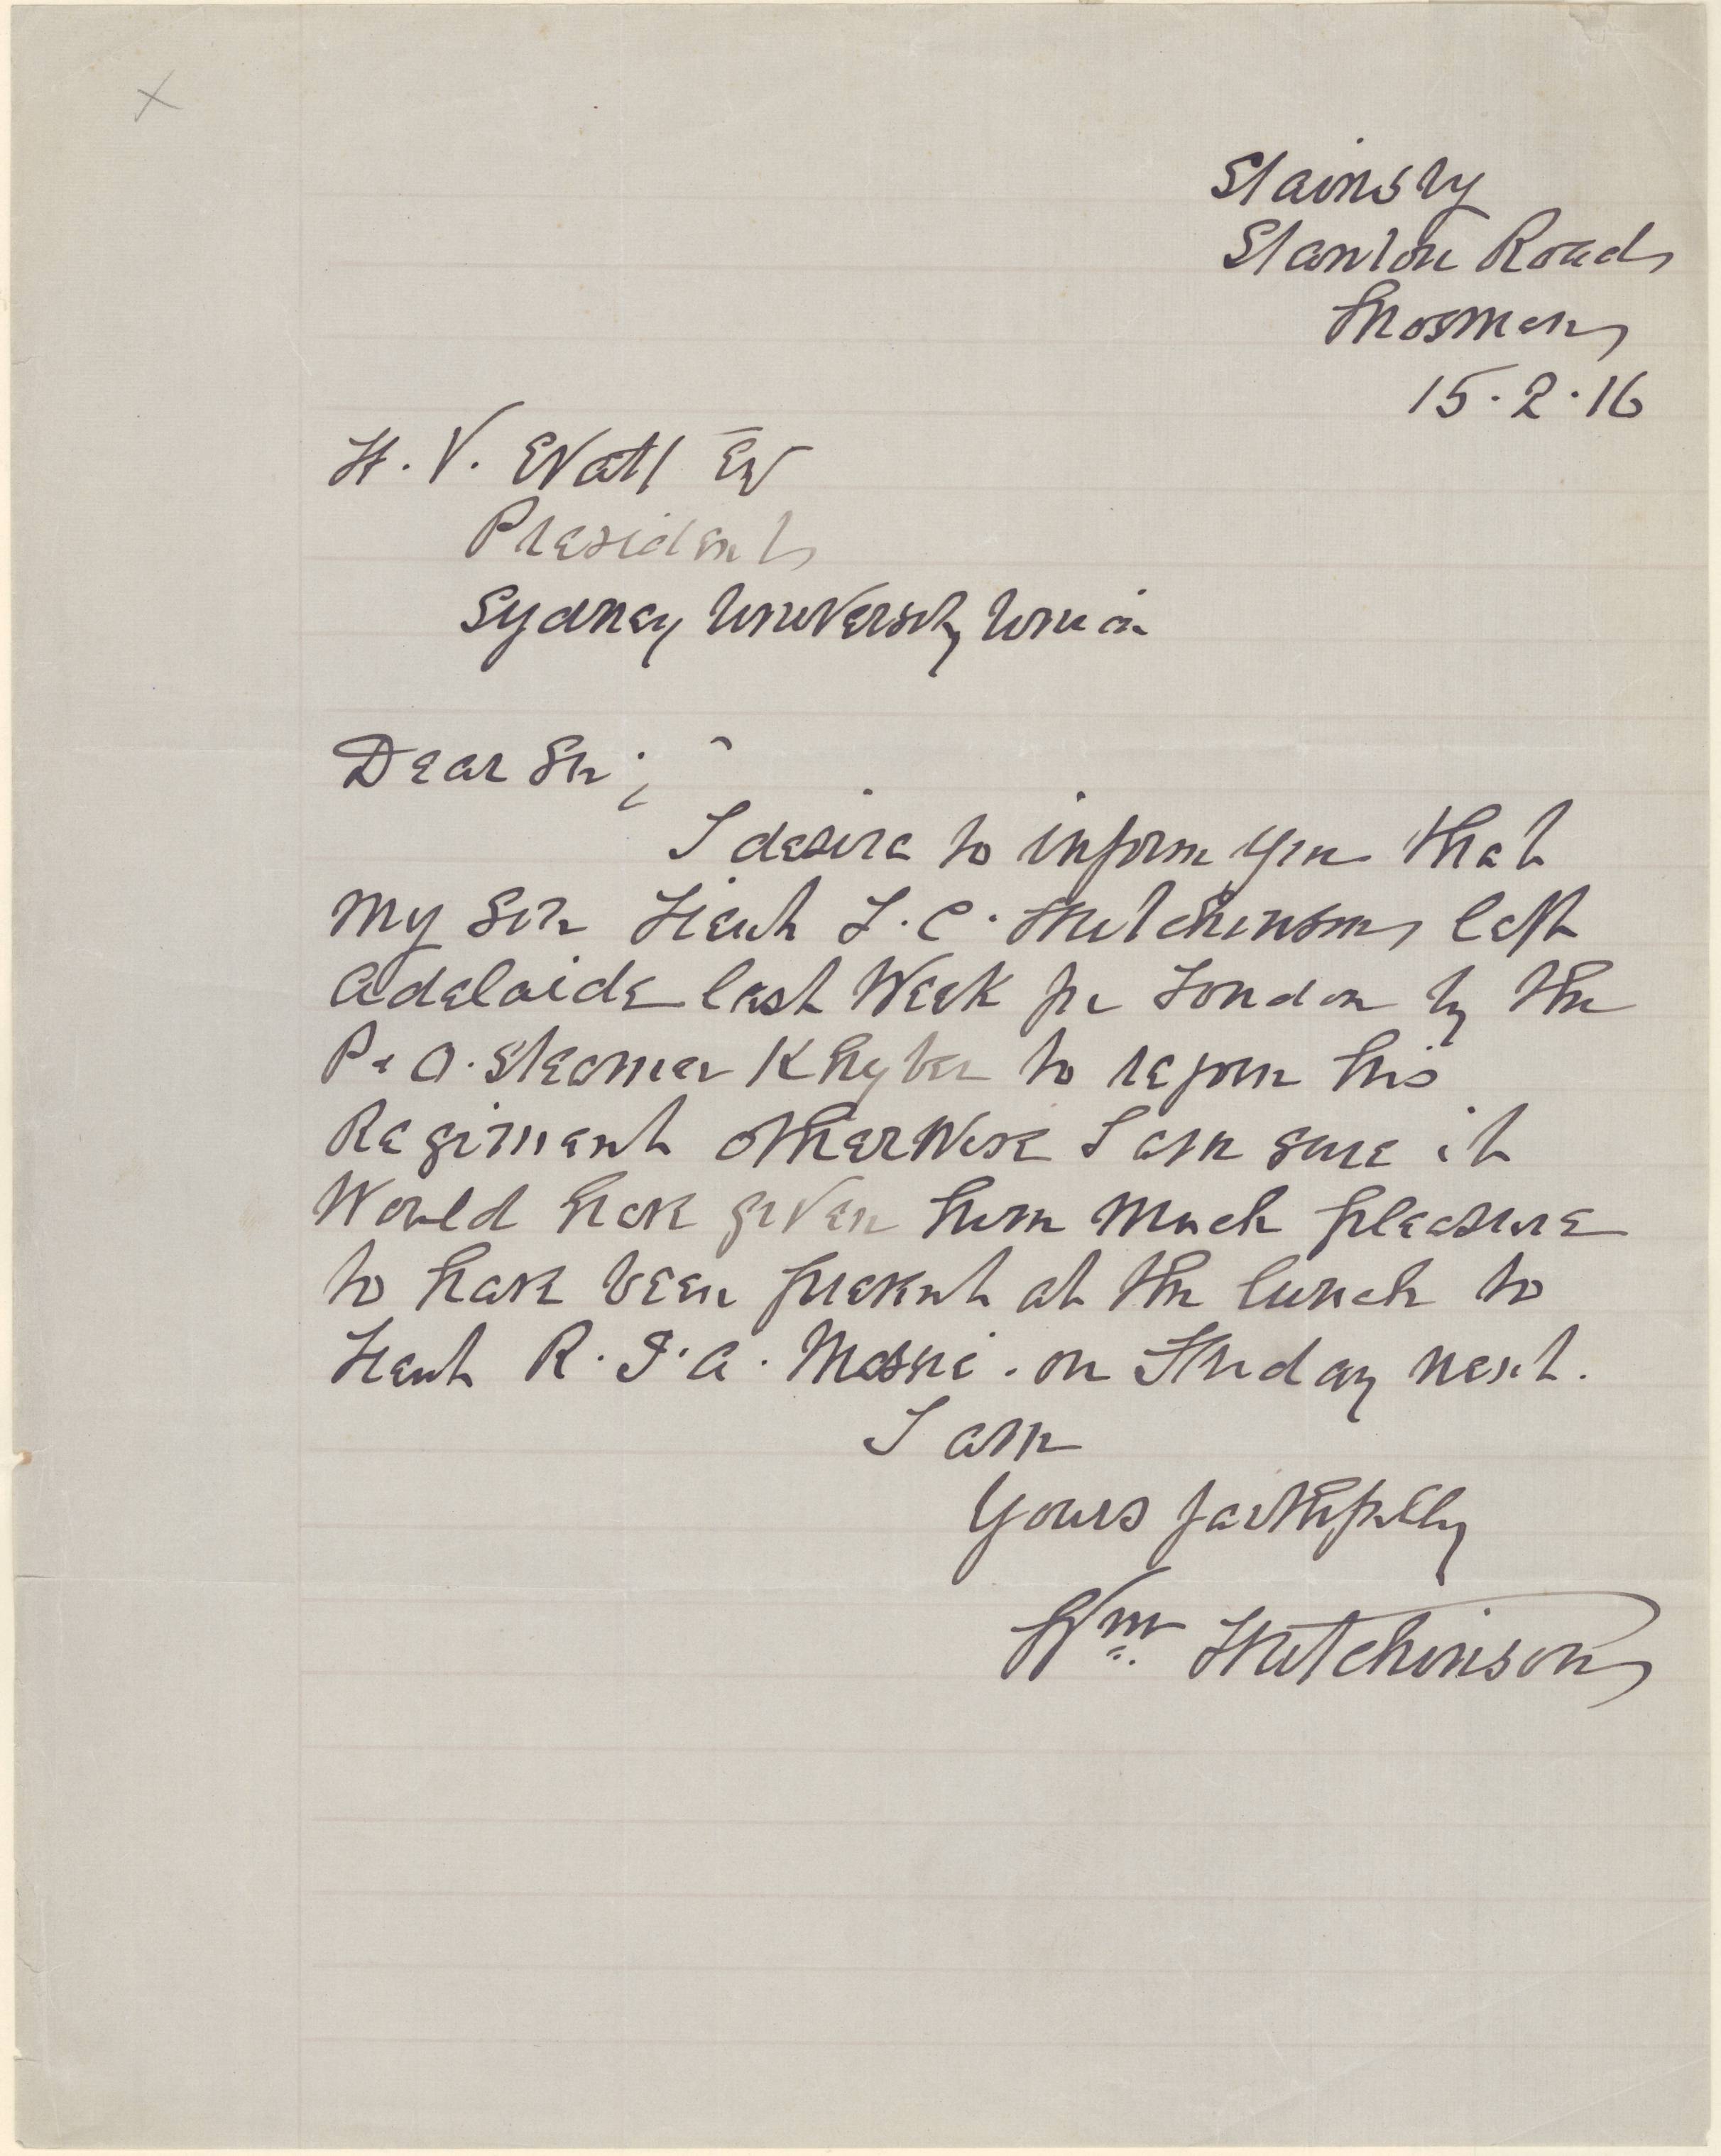 Stainsby
Stanton Road
Mosman
15.2.16
H. V. Evatt Esq
President
Sydney University Union
Dear Sir;
I desire to inform you that
my son Lieut L. C. Hutchinson left
Adelaide last week for London by the
P & O. Steamer Khyber to rejoin his
Regiment otherwise I am sure it
would have given him much pleasure
to have been present at the lunch to
Lieut R. J. A. Massie. on Friday next.
I am
Yours faithfully
Wm Hutchinson